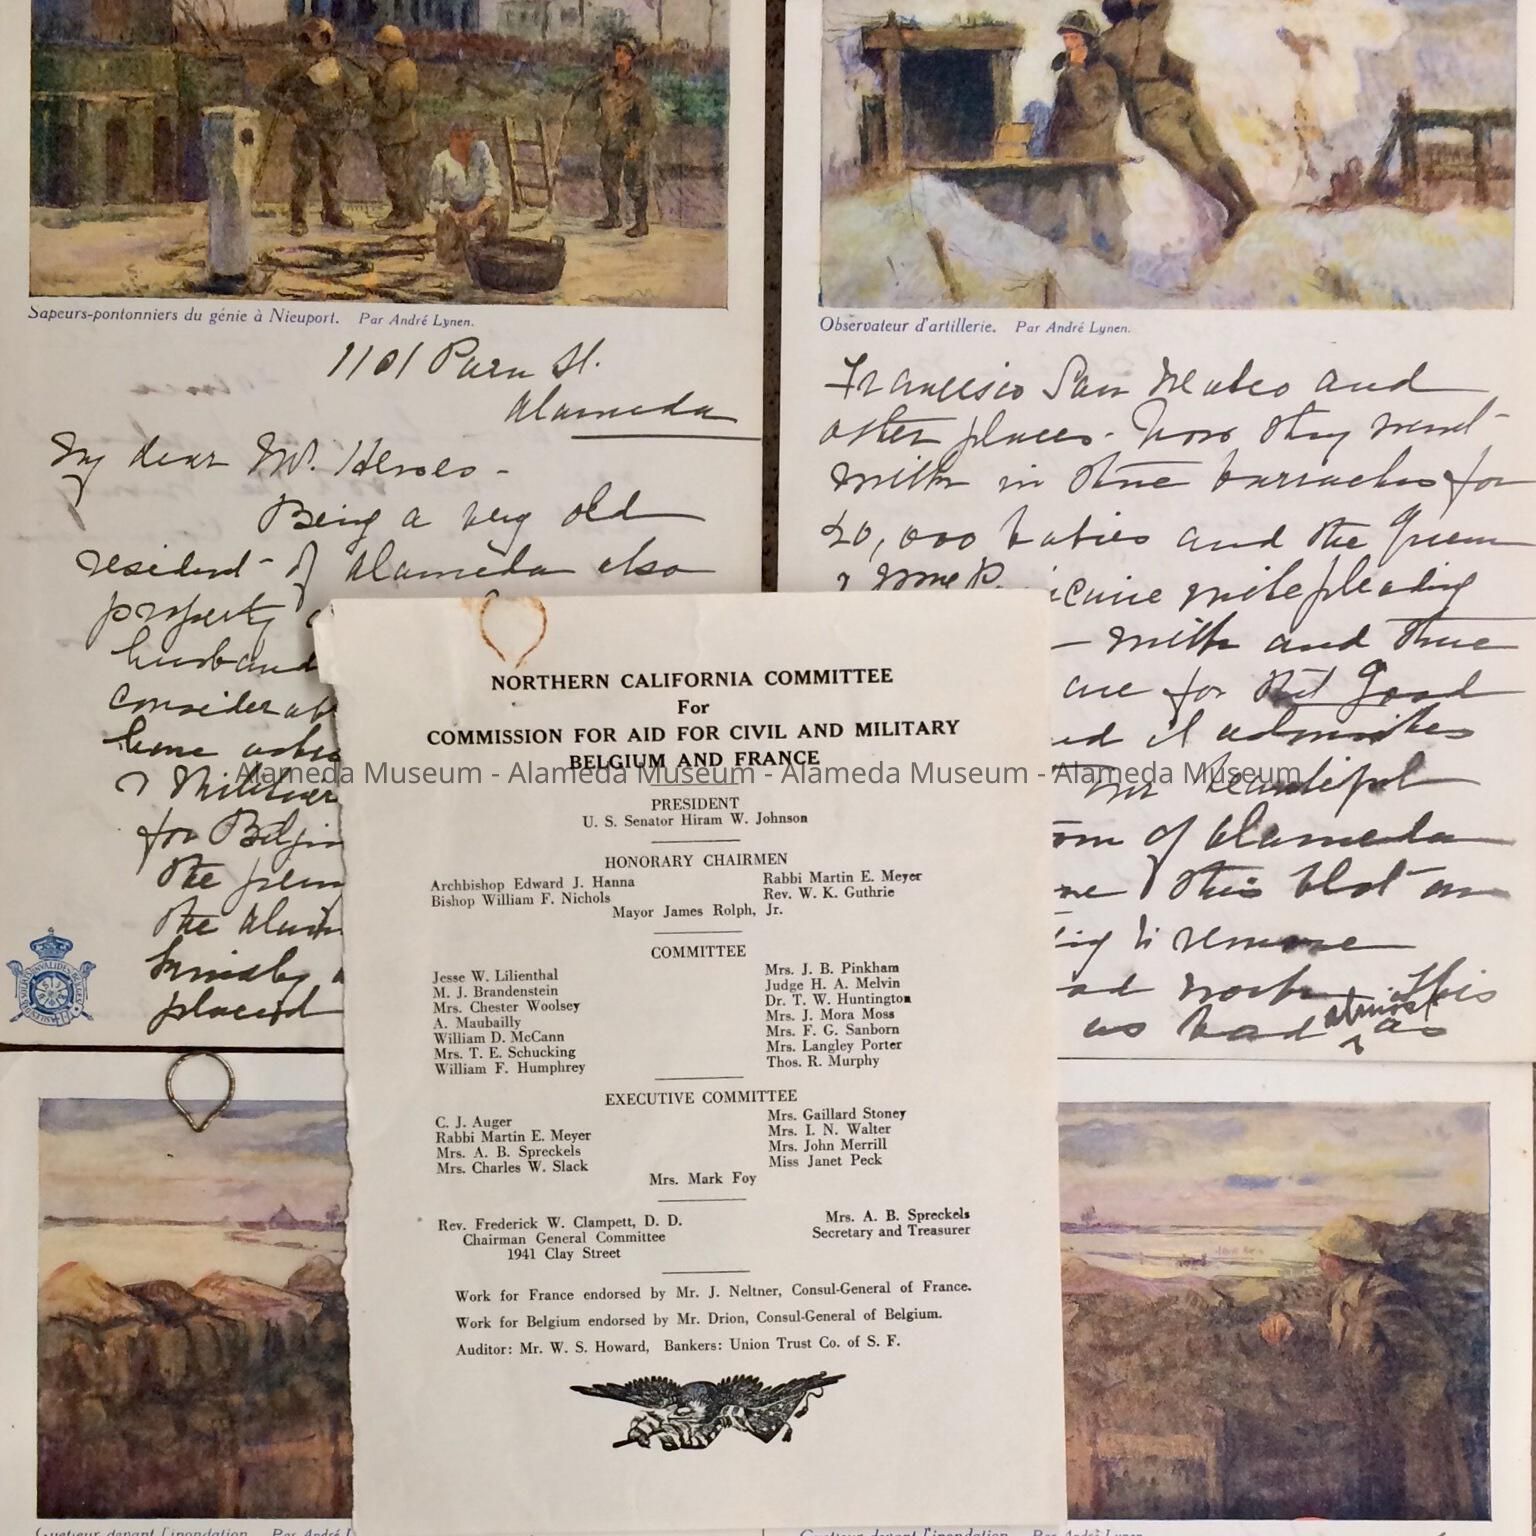 Sapeurs-pontonniers du génie à Nieuport. Par André Lynen.
1101 St.
Alameda
My dear Mr.
Being a very old
resident of Alameda also
property
husband
considerab
have
&
for Belgi
the
the
kindly
placed
Observateur d'artillerie. Par André Lynen.
Francisco San Mateo and
other places. Now they want
milk in the for
20,000 babies and the Queen
pleading
milk and
for that good
ed it
beautiful
of Alameda
this blot on
ing to remove
ad work this
as bad almost as
NORTHERN CALIFORNIA COMMITTEE
For
COMMISSION FOR AID FOR CIVIL AND MILITARY
BELGIUM AND FRANCE
Alameda Museum - Alameda Museum - Alameda Museum - Alameda Museum
PRESIDENT
U. S. Senator Hiram W. Johnson
HONORARY CHAIRMEN
Archbishop Edward J. Hanna
Bishop William F. Nichols
Rabbi Martin E. Meyer
Rev. W. K. Guthrie
Mayor James Rolph, Jr.
COMMITTEE
Jesse W. Lilienthal
M. J. Brandenstein
Mrs. Chester Woolsey
A. Maubailly
William D. McCann
Mrs. T. E. Schucking
William F. Humphrey
Mrs. J. B. Pinkham
Judge H. A. Melvin
Dr. T. W. Huntington
Mrs. J. Mora Moss
Mrs. F. G. Sanborn
Mrs. Langley Porter
Thos. R. Murphy
EXECUTIVE COMMITTEE
C. J. Auger
Rabbi Martin E. Meyer
Mrs. A. B. Spreckels
Mrs. Charles W. Slack
Mrs. Gaillard Stoney
Mrs. I. N. Walter
Mrs. John Merrill
Miss Janet Peck
Mrs. Mark Foy
Rev. Frederick W. Clampett, D. D.
Chairman General Committee
1941 Clay Street
Mrs. A. B. Spreckels
Secretary and Treasurer
Work for France endorsed by Mr. J. Neltner, Consul-General of France.
Work for Belgium endorsed by Mr. Drion, Consul-General of Belgium.
Auditor: Mr. W. S. Howard, Bankers: Union Trust Co. of S. F.
Guetteur devant l'inondation. Par André L
Guetteur devant l'inondation. Par André Lynen.